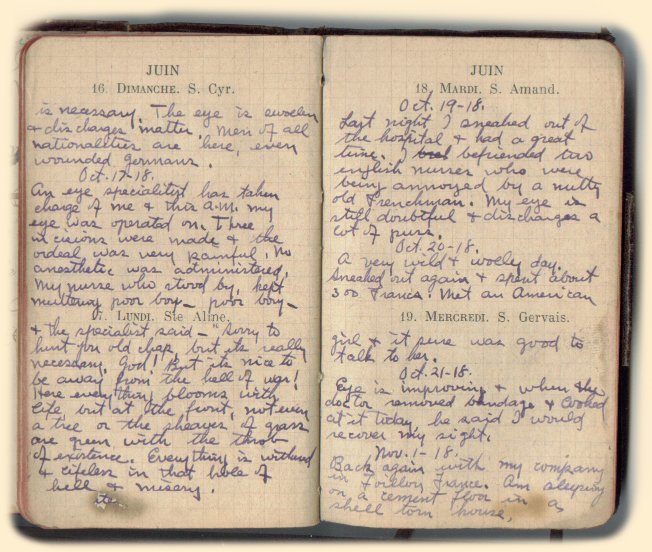 JUIN
16. DIMANCHE. S. Cyr.
is necessary. The eye is swolen
& discharges matter. Men of all
nationalities are here, even
wounded Germans.
Oct. 17-18.
An eye specialist has taken
charge of me & this A.M. my
eye was operated on. Three
incisions were made & the
ordeal was very painful. No
anesthetic was administered.
My nurse who stood by, kept
muttering poor boy - poor boy -
17. LUNDI. Ste Aline.
& the specialist said - "Sorry to
hurt you old chap, but its really
necessary. God! But its nice to
be away from the hell of war!
Here everything blooms with
life, but at the front, not even
a tree or the sheaves of grass
are green with the throb
of existence. Everything is withered
& lifeless in that hole of
hell & misery.
JUIN
18. MARDI. S. Amand.
Oct. 19-18.
Last night I sneaked out of
the hospital & had a great
time. I befriended two
english nurses who were
being annoyed by a nutty
old Frenchman. My eye is
still doubtful & discharges a
lot of puss.
Oct. 20-18.
A very wild & woolly day.
Sneaked out again & spent about
300 Francs. Met an American
19. MERCREDI. S. Gervais.
girl & it sure was good to
talk to her.
Oct. 21-18.
Eye is improving & when the
doctor removed bandage & looked
at it today, he said I would
recover my sight.
Nov. 1-18.
Back again with my company
in France. Am sleeping
on a cement floor in a
shell torn house,